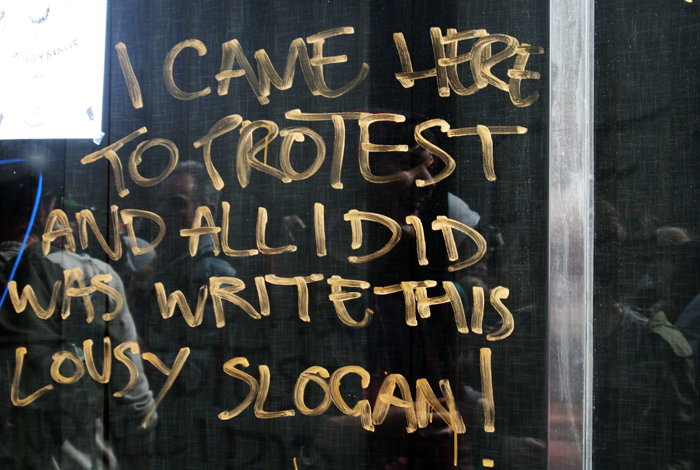 I CAME HERE
TO PROTEST
AND ALL I DID
WAS WRITE THIS
LOUSY SLOGAN!